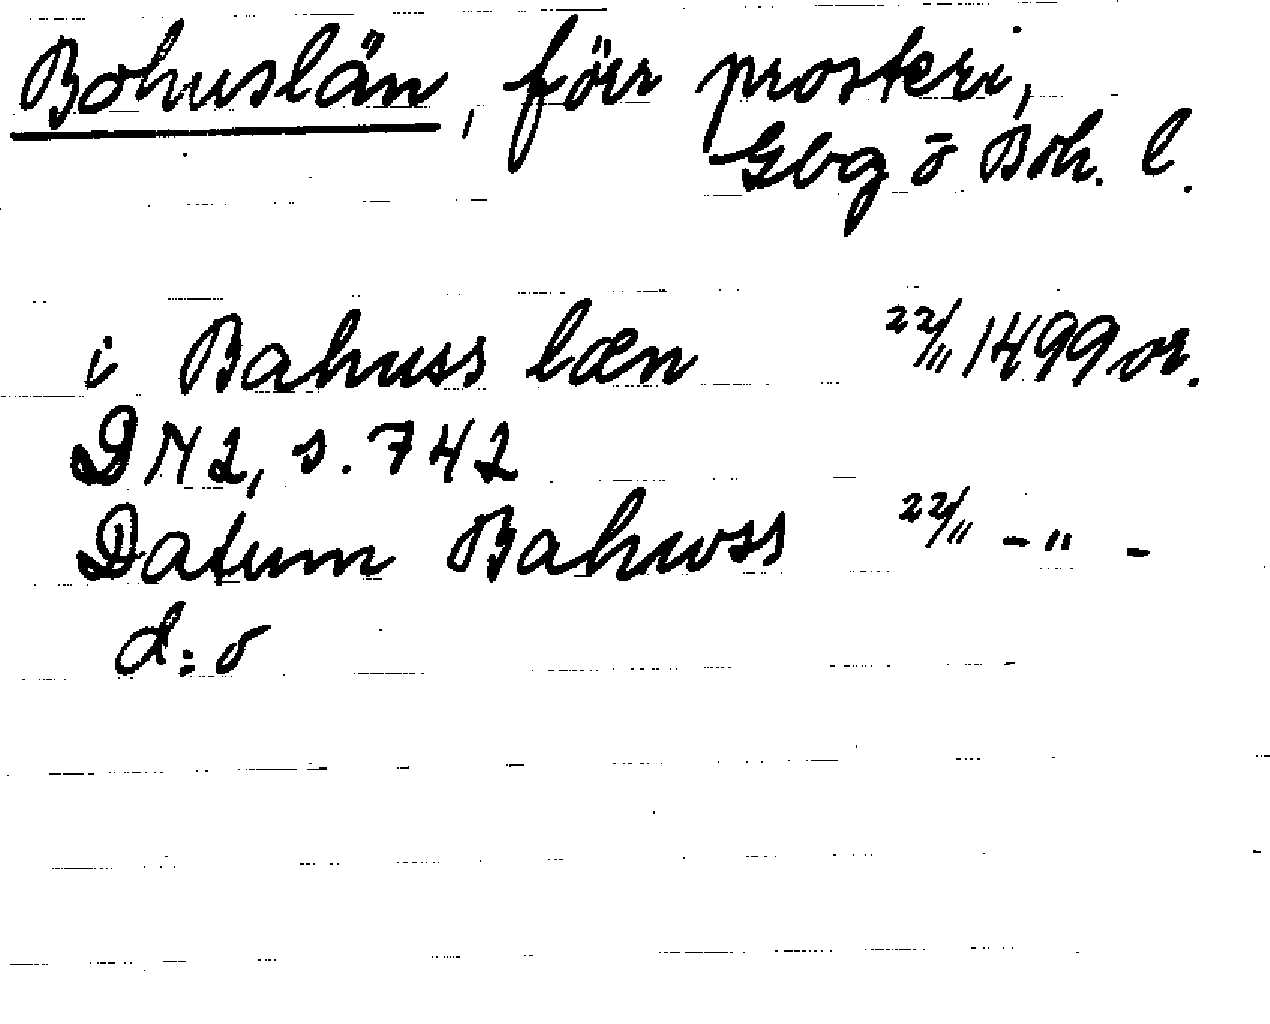 Bohuslän, förr prosteri,
Gbg o Boh. l.
i Bahuss læn 22/11 1499 or.
DN 2, s. 742
Datum Bahwss 22/11 - " -
d:o